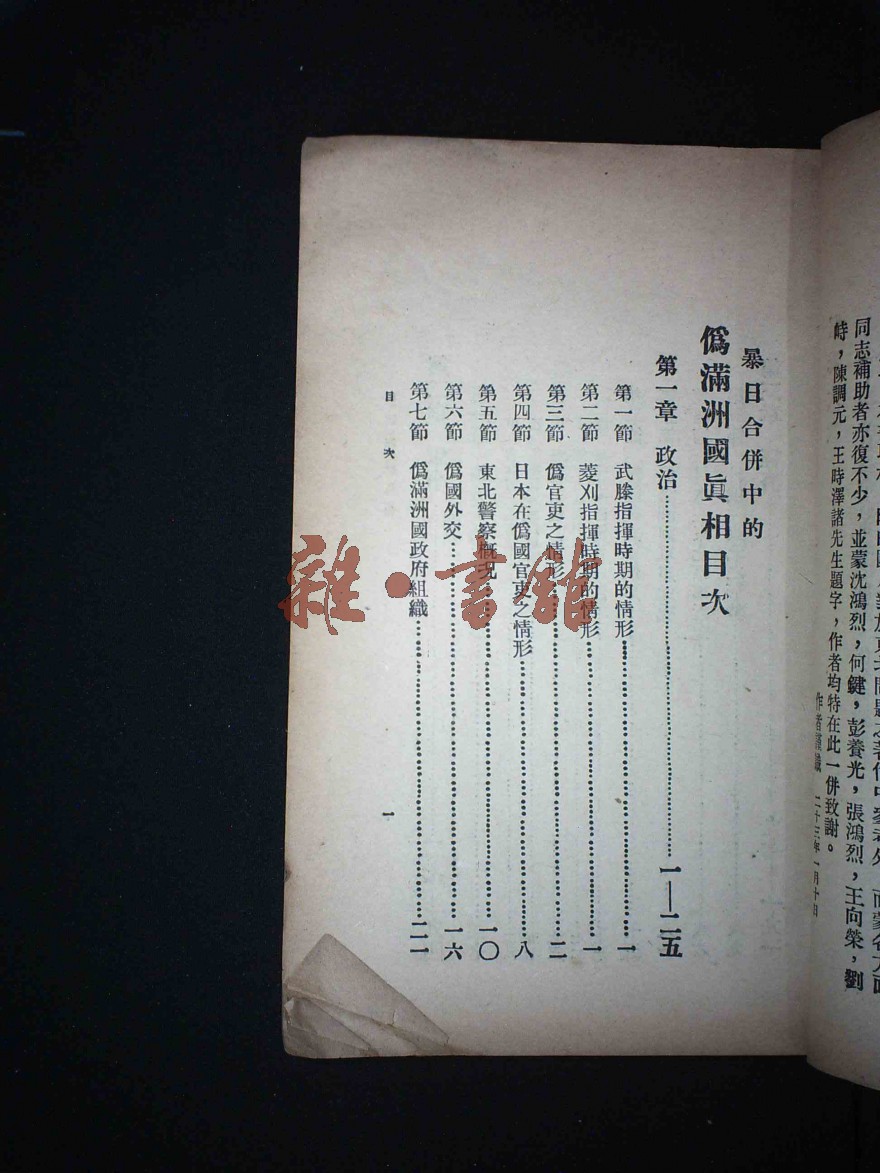 同志補助者亦復不少，並蒙沈鴻烈，何鍵，彭養光，張鴻烈，王向榮，劉
峙，陳調元，王時澤諸先生題字，作者均特在此一併致謝。
作者謹識　二十三年一月十日
暴日合併中的
僞滿洲國眞相目次
第一章　政治……一—二五
第一節　武滕指揮時期的情形……一
第二節　菱刈指揮時期的情形……一
第三節　僞官吏之情形……二
第四節　日本在僞國官吏之情形……八
第五節　東北警察概况……一〇
第六節　僞國外交……一六
第七節　僞滿洲國政府組織……二一
目次
一
雜·書館